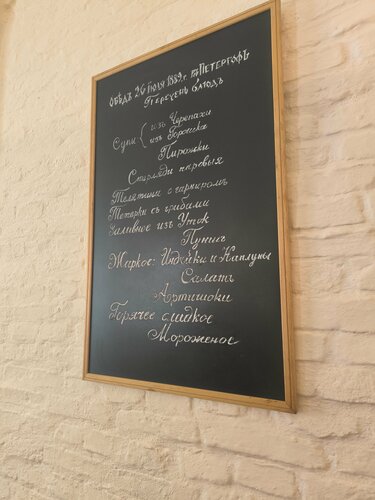 Обѣдъ 26 июля 1889 г. въ Петергофъ
Перечень блюдъ
Супы { изъ Черепахи
изъ Горошка
Пирожки
Стерляди паровыя
Телятина с гарниромъ
Тетерки съ грибами
Заливное изъ Уток
Пуншъ
Жаркое: Индѣйки и Каплуны
Салатъ
Артишоки
Горячее сладкое
Мороженое